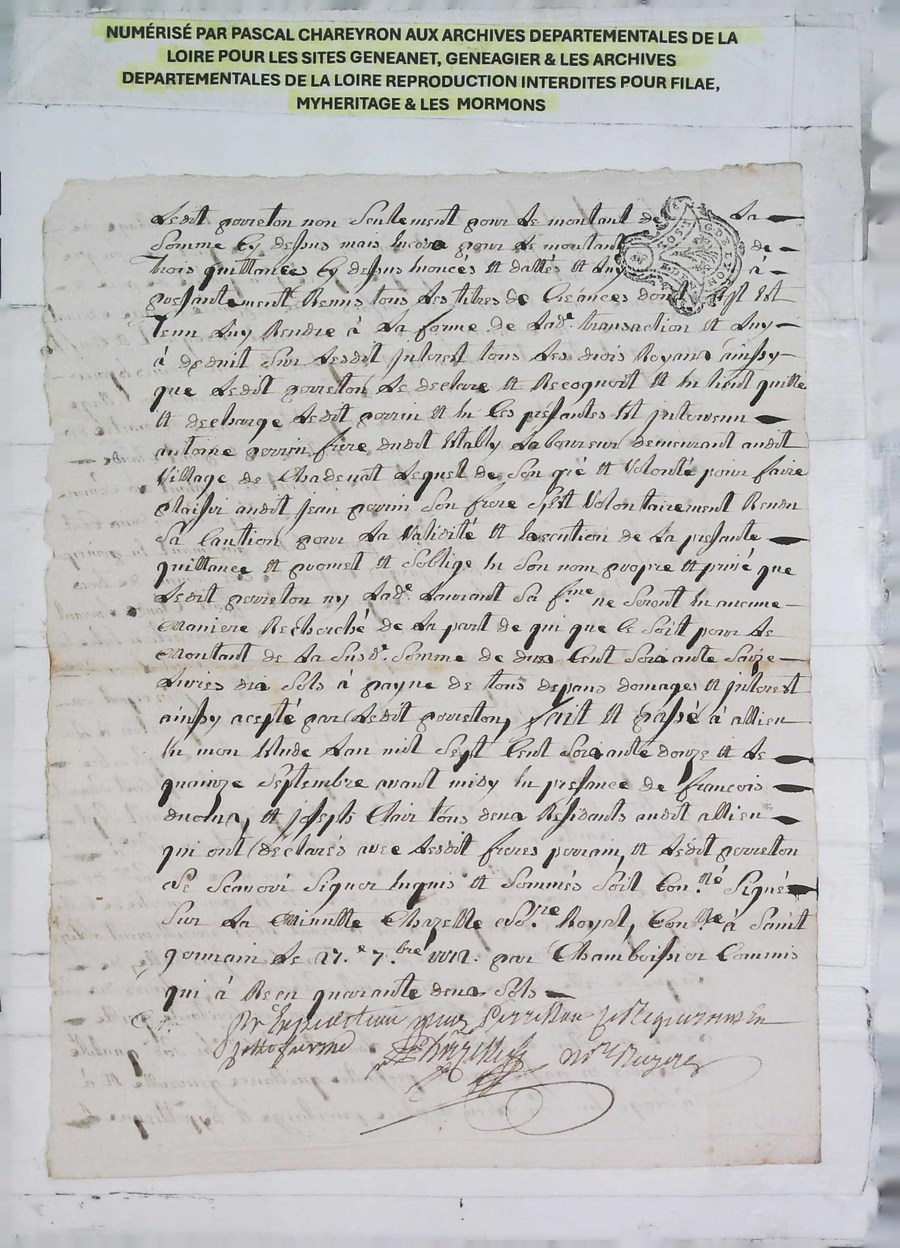 NUMÉRISÉ PAR PASCAL CHAREYRON AUX ARCHIVES DEPARTEMENTALES DE LA
LOIRE POUR LES SITES GENEANET, GENEAGIER & LES ARCHIVES
DEPARTEMENTALES DE LA LOIRE REPRODUCTION INTERDITES POUR FILAE,
MYHERITAGE & LES MORMONS
Ledit perreton non Seulement pour Le montant de La
Somme Cy dessus mais Encore pour Le montant de
Trois quittances Cy dessus Enoncés et dattés et Luy à
presantement Remis tous Les titres de Créances dont Est
Tenu Luy Rendre à La forme de Lade. transaction et Luy
à deduit Sur Lesdit Interest tous Les drois Royaux ainssy
que Ledit perreton Le declare et Recognoit et En tient quitte
et decharge Ledit perrin et En Ces presantes Est intervenu
antoine perrin frere dudit Laboureur demeurant audit
Village de Chadenat Lequel de Son gré et Volonté pour faire
plaisir audit jean perrin Son frere Sest Volontairement Rendu
Sa Caution pour La Validité et Execution de La presante
quittance et promet et Soblige En Son nom propre et privé que
Ledit perreton ny Lade. Laurant Sa fme ne Seront En aucune
Maniere Recherché de La part de qui que Ce Soit pour Le
Montant de La Susde. Somme de deux Cent Soixante Seize
Livres dix Sols à payne de tous depans domages et interest
ainssy acepté par Ledit perreton, fait et passé à allieu
En mon Etude Lan mil Sept Cent Soixante douze et Le
quinze Septembre avant midy En presance de francois
et joseph Clair tous deux Residants audit allieu
qui ont declarés avec Lesdit freres perrain, et Ledit perreton
Ne Scavoir Signer Enquis et Sommés Soit Con.llé Signés
Sur La Minutte Chazelle Nore Royal, Conllé à Saint
germain Le 27.e 7.bre 1772. par Chamboissier Commis
qui à Reçu quarante deux Sols
Pr Expedition pour Perreton Le Requerant